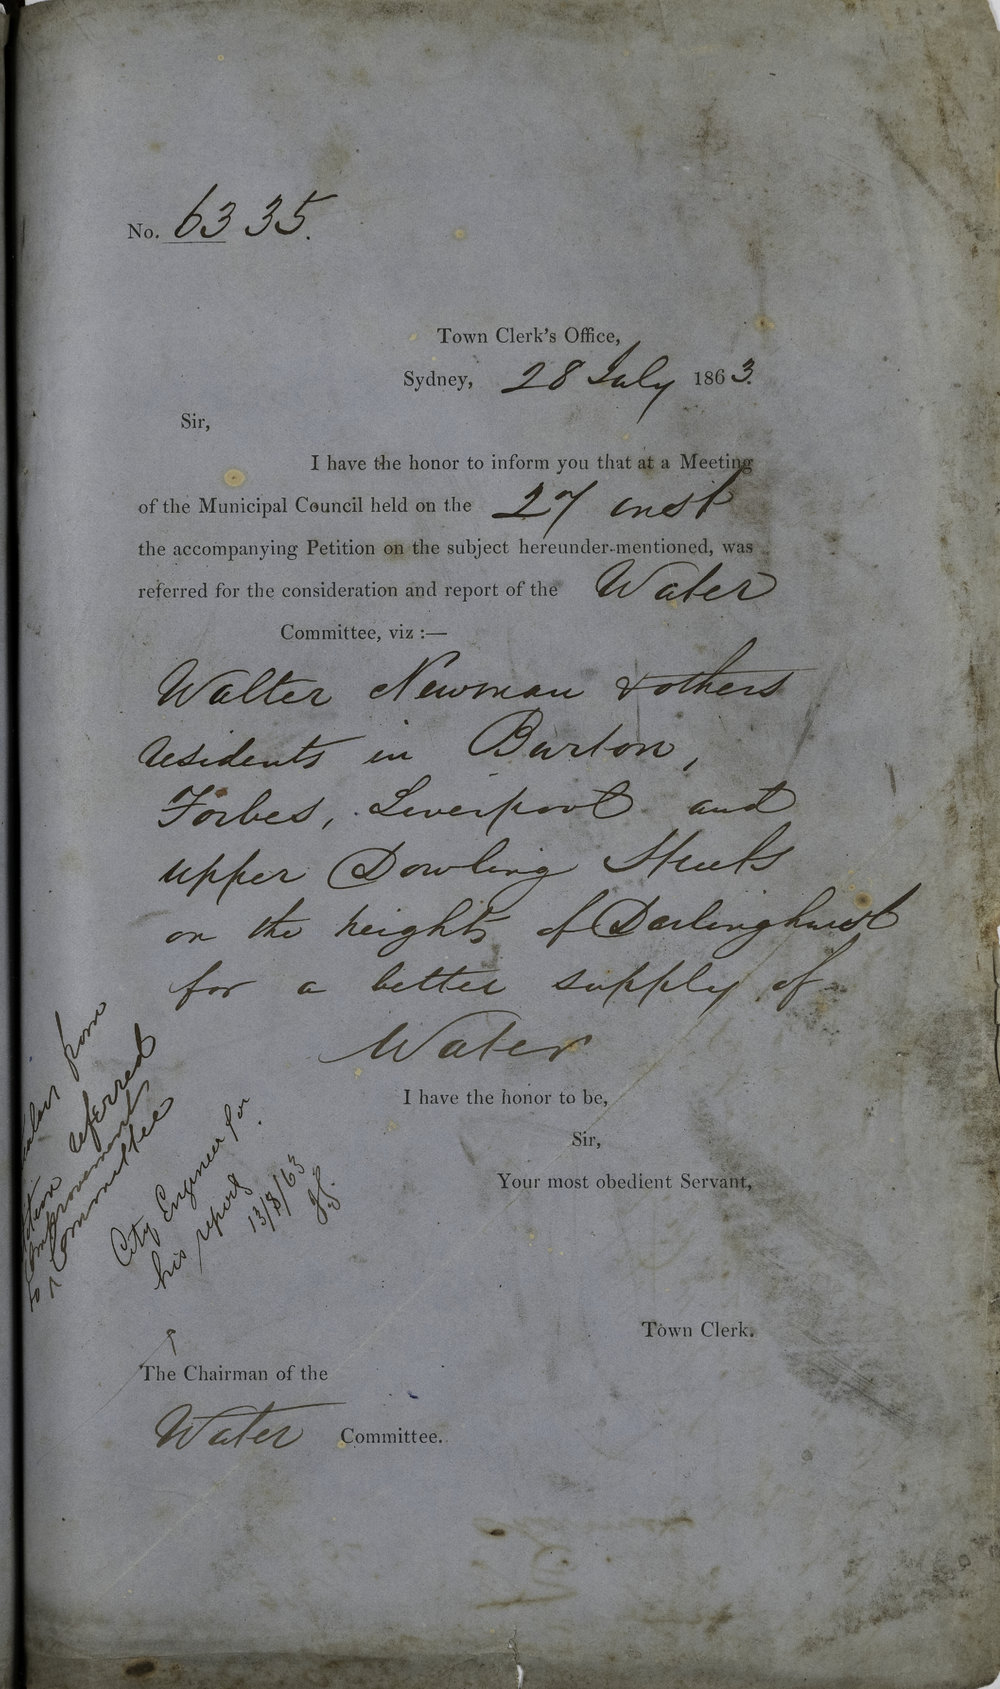 No. 6335.
Town Clerk's Office,
Sydney, 28 July 1863.
Sir,
I have the honor to inform you that at a Meeting
of the Municipal Council held on the 27 inst
the accompanying Petition on the subject hereunder-mentioned, was
referred for the consideration and report of the Water
Committee, viz :—
Walter Newman & others
residents in Burton,
Forbes, Liverpool and
upper Dowling Streets
on the heights of Darlinghurst
for a better supply of
Water
I have the honor to be,
Sir,
Your most obedient Servant,
from
referred
to Improvement
Committee
City Engineer for
his report
13/8/63
Town Clerk.
The Chairman of the
Water Committee.